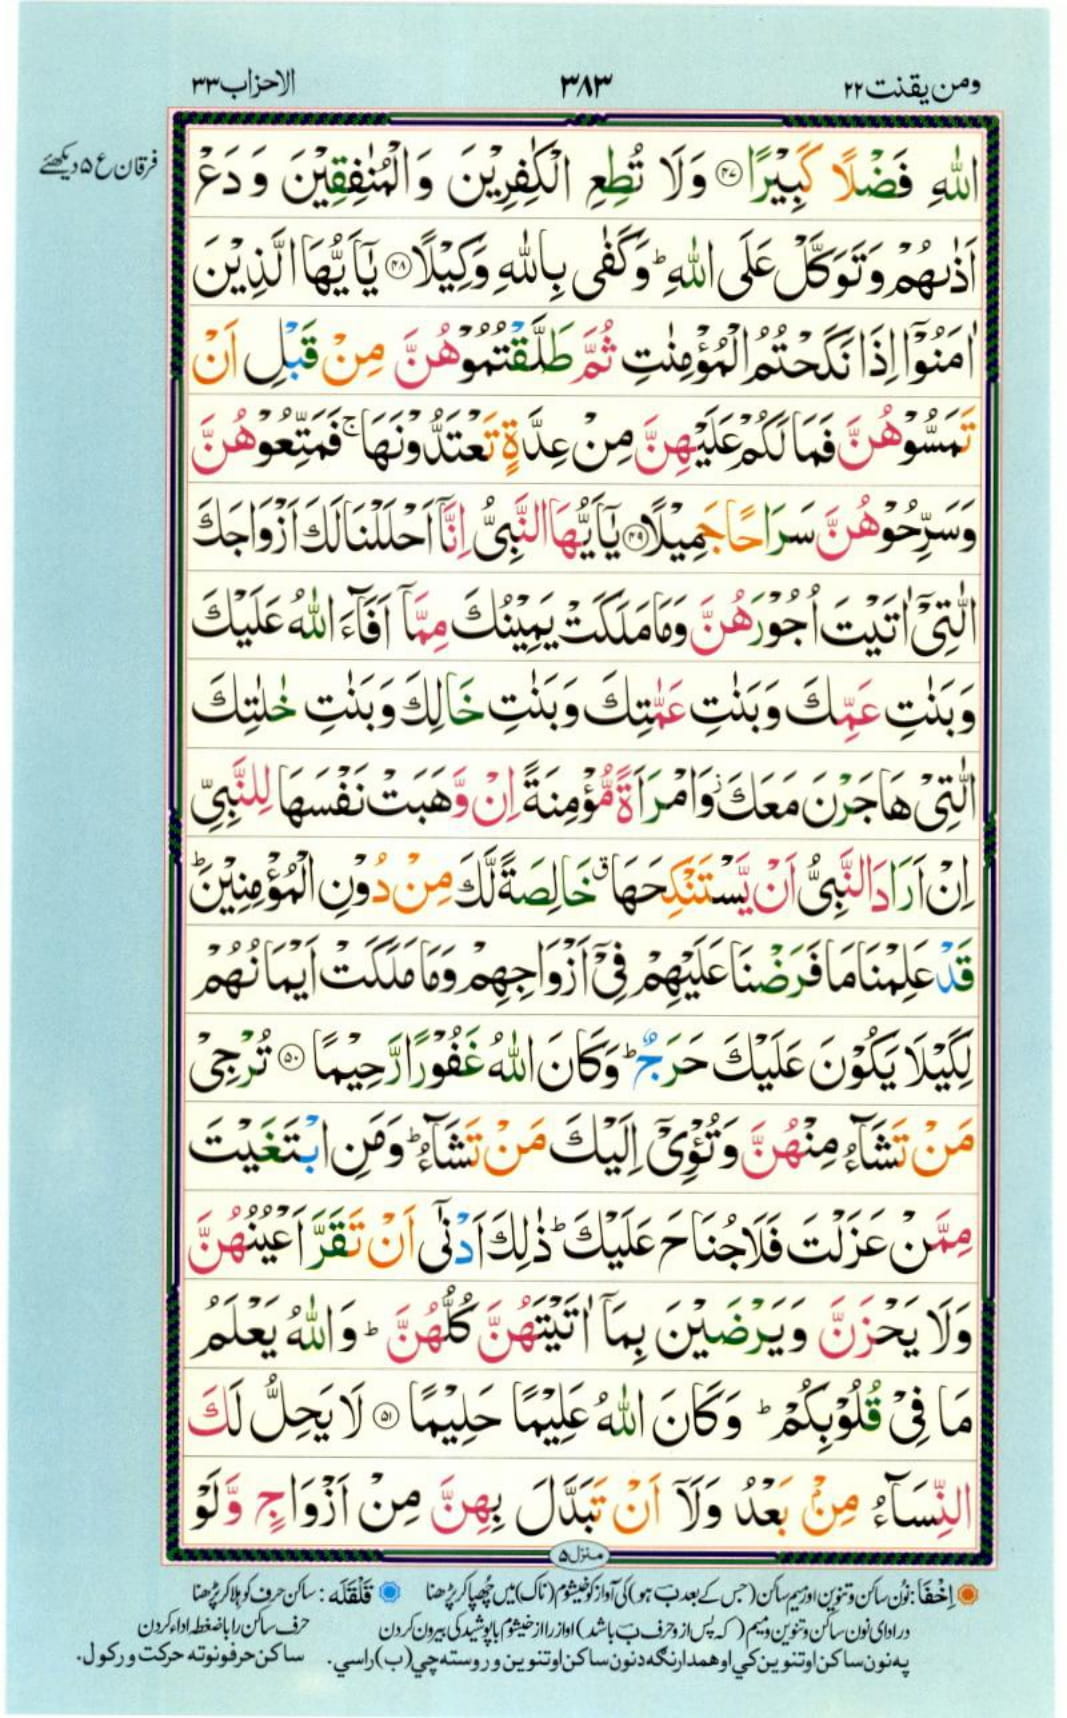 ومن یقنت ۲۲
۳۸۳
الاحزاب ۳۳
فرقان ع ۵ دیکھئے
اللّٰهِ فَضْلًا كَبِيْرًا ۴۷ وَلَا تُطِعِ الْكٰفِرِيْنَ وَالْمُنٰفِقِيْنَ وَدَعْ
اَذٰىهُمْ وَتَوَكَّلْ عَلَى اللّٰهِ ؕ وَكَفٰى بِاللّٰهِ وَكِيْلًا ۴۸ يٰۤاَيُّهَا الَّذِيْنَ
اٰمَنُوْۤا اِذَا نَكَحْتُمُ الْمُؤْمِنٰتِ ثُمَّ طَلَّقْتُمُوْهُنَّ مِنْ قَبْلِ اَنْ
تَمَسُّوْهُنَّ فَمَا لَكُمْ عَلَيْهِنَّ مِنْ عِدَّةٍ تَعْتَدُّوْنَهَا ۚ فَمَتِّعُوْهُنَّ
وَسَرِّحُوْهُنَّ سَرَاحًا جَمِيْلًا ۴۹ يٰۤاَيُّهَا النَّبِيُّ اِنَّاۤ اَحْلَلْنَا لَكَ اَزْوَاجَكَ
الّٰتِيْۤ اٰتَيْتَ اُجُوْرَهُنَّ وَمَا مَلَكَتْ يَمِيْنُكَ مِمَّاۤ اَفَآءَ اللّٰهُ عَلَيْكَ
وَبَنٰتِ عَمِّكَ وَبَنٰتِ عَمّٰتِكَ وَبَنٰتِ خَالِكَ وَبَنٰتِ خٰلٰتِكَ
الّٰتِيْ هَاجَرْنَ مَعَكَ ز وَامْرَاَةً مُّؤْمِنَةً اِنْ وَّهَبَتْ نَفْسَهَا لِلنَّبِيِّ
اِنْ اَرَادَ النَّبِيُّ اَنْ يَّسْتَنْكِحَهَا ق خَالِصَةً لَّكَ مِنْ دُوْنِ الْمُؤْمِنِيْنَ ؕ
قَدْ عَلِمْنَا مَا فَرَضْنَا عَلَيْهِمْ فِيْۤ اَزْوَاجِهِمْ وَمَا مَلَكَتْ اَيْمَانُهُمْ
لِكَيْلَا يَكُوْنَ عَلَيْكَ حَرَجٌ ؕ وَكَانَ اللّٰهُ غَفُوْرًا رَّحِيْمًا ۵۰ تُرْجِيْ
مَنْ تَشَآءُ مِنْهُنَّ وَتُؤْيْۤ اِلَيْكَ مَنْ تَشَآءُ ؕ وَمَنِ ابْتَغَيْتَ
مِمَّنْ عَزَلْتَ فَلَا جُنَاحَ عَلَيْكَ ؕ ذٰلِكَ اَدْنٰۤى اَنْ تَقَرَّ اَعْيُنُهُنَّ
وَلَا يَحْزَنَّ وَيَرْضَيْنَ بِمَاۤ اٰتَيْتَهُنَّ كُلُّهُنَّ ؕ وَاللّٰهُ يَعْلَمُ
مَا فِيْ قُلُوْبِكُمْ ؕ وَكَانَ اللّٰهُ عَلِيْمًا حَلِيْمًا ۵۱ لَا يَحِلُّ لَكَ
النِّسَآءُ مِنْۢ بَعْدُ وَلَاۤ اَنْ تَبَدَّلَ بِهِنَّ مِنْ اَزْوَاجٍ وَّلَوْ
منزل ۵
اِخْفَا: نون ساکن و تنوین اور میم ساکن (جس کے بعد ب ہو) کی آواز کو خیشوم (ناک) میں چھپا کر پڑھنا قَلْقَلَه: ساکن حرف کو ہلا کر پڑھنا
در ادای نون ساکن و تنوین و میم (که پس از و حرف ب باشد) اواز را از خیشوم با پوشیدگی بیرون کردن حرف ساکن را با ضغطه اداء کردن
په نون ساکن او تنوین کي او همدارنګه د نون ساکن او تنوین وروسته چي (ب) راسي. ساکن حرفونو ته حرکت ورکول.